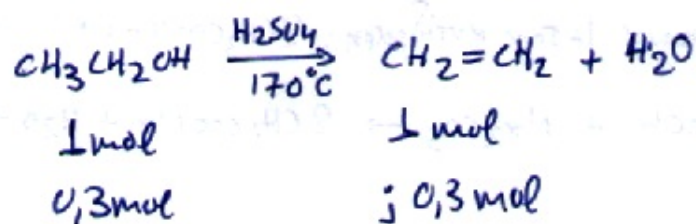 CH₃CH₂OH —H₂SO₄/170°C→ CH₂=CH₂ + H₂O
1mol 1 mol
0,3mol ; 0,3 mol